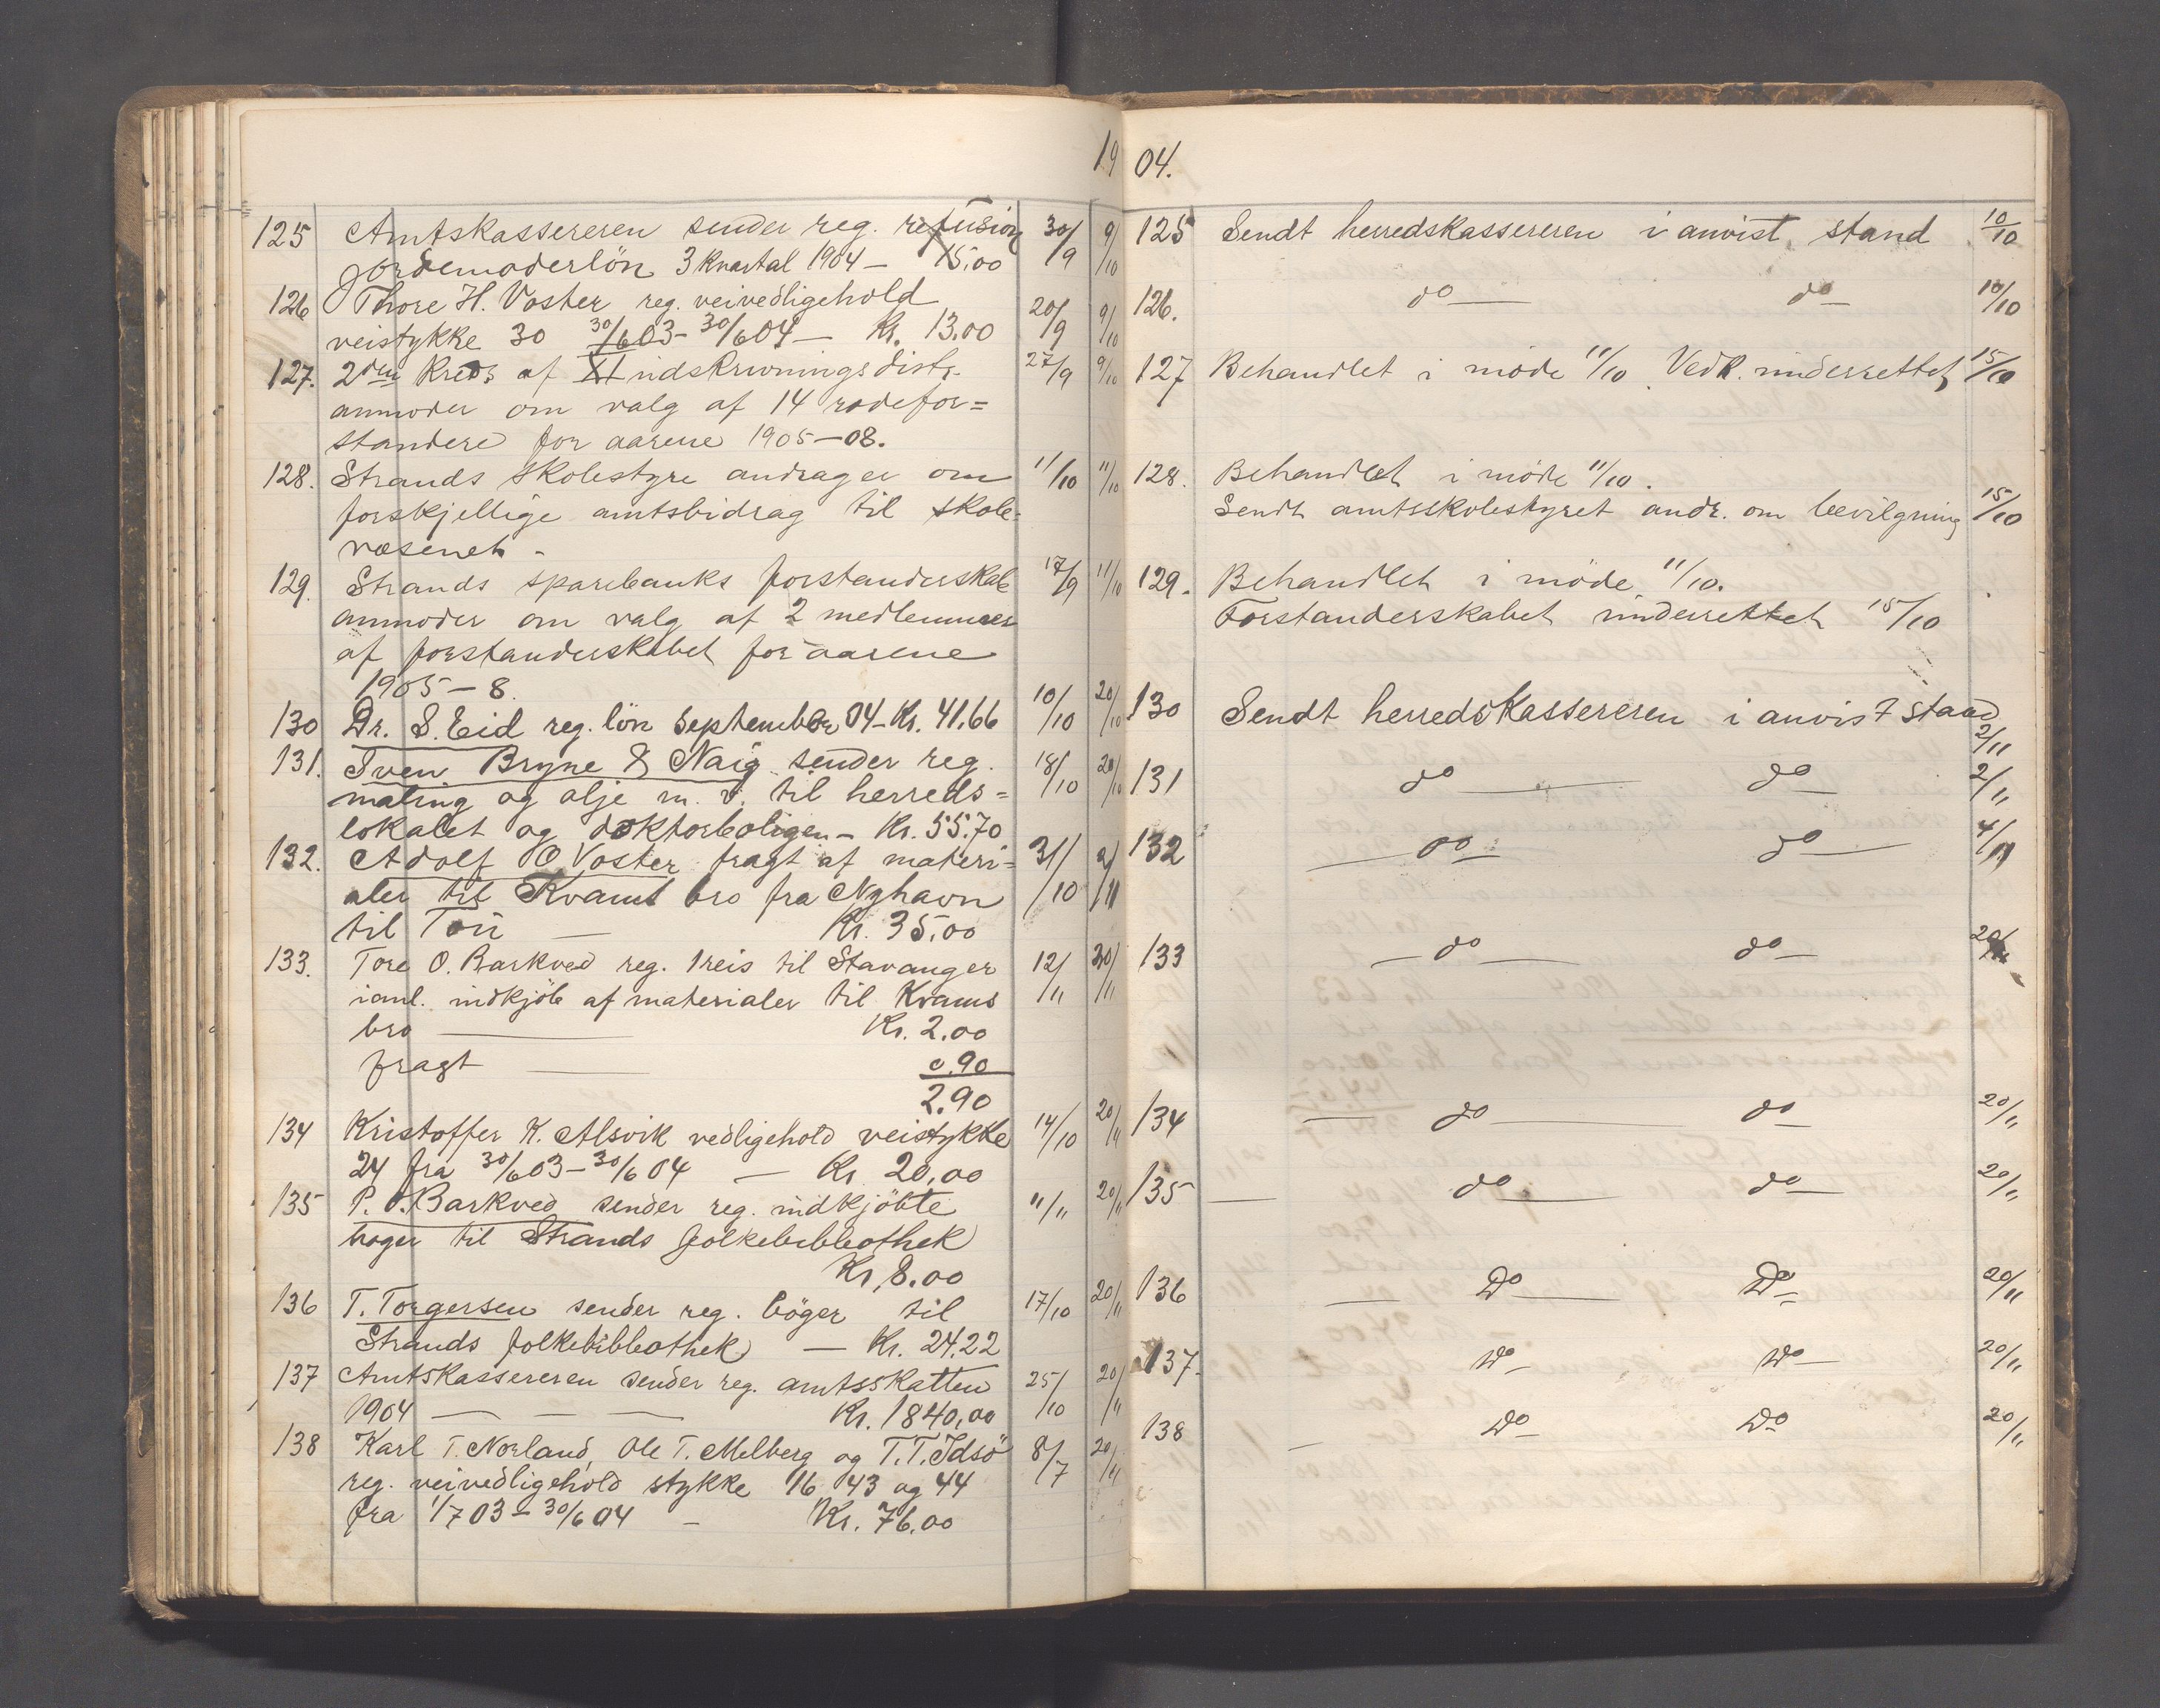 1904.
125 Amtskassereren sender reg. refusion 30/9 9/10
Jordemoderlön 3 kvartal 1904 — 15.00
126 Thore H. Voster reg. veivedligehold 20/9 9/10
veistykke 30 30/6 03 - 30/6 04 — Kr. 13.00
127. 2den Kreds af XI indskrivningsdistr. 27/9 9/10
anmoder om valg af 14 rodefor=
standere for aarene 1905—08.
128. Strands skolestyre andrager om 11/10 11/10
forskjellige amtsbidrag til skole=
væsenet.
129. Strands sparebanks forstanderskab 17/9 11/10
anmoder om valg af 2 medlemmer
af forstanderskabet for aarene
1905—8.
130 Dr. S. Eid reg. lön September 04 - Kr. 41.66 10/10 20/10
131. Sven Bryne & Naig sender reg. 18/10 20/10
maling og olje m. v. til herreds=
lokalet og doktorboligen — Kr. 55.70
132. Adolf O Voster fragt af materi= 31/10 2/11
aler til Kvams bro fra Nyhavn
til Tou — Kr. 35.00
133. Tore O. Barkved reg. 1 reis til Stavanger 12/11 20/11
ianl. indkjöb af materialer til Kvams
bro — Kr. 2.00
fragt — 0.90
2.90
134 Kristoffer K. Alsvik vedligehold veistykke 14/10 20/11
24 fra 30/6 03 - 30/6 04 — Kr 20.00
135 P. O. Barkved sender reg. indkjöbte 11/11 20/11
böger til Strands folkebibliothek
Kr. 8.00
136 T. Torgersen sender reg. böger til 17/10 20/11
Strands folkebibliothek — Kr. 24.22
137 Amtskassereren sender reg. amtsskatten 25/10 20/11
1904 — — — Kr. 1840,00
138 Karl T. Norland, Ole T. Melberg og T. T. Idsö 8/7 20/11
reg. veivedligehold stykke 16, 43 og 44
fra 1/7 03 - 30/6 04 — Kr. 76.00
125 Sendt herredskassereren i anvist stand 10/10
126. do — do — 10/10
127 Behandlet i möde 11/10. Vedk. underrettet 15/10
128. Behandlet i möde 11/10.
Sendt amtsskolestyret andr. om bevilgning 15/10
129. Behandlet i möde 11/10.
Forstanderskabet underrettet 15/10
130 Sendt herredskassereren i anvist stand
2/11
131 do — do — 2/11
132 — do — do — 4/11
133 — do — do — 20/11
134 — do — do — 20/11
135 — do — do — 20/11
136 — Do — Do — 20/11
137. Do — Do — 20/11
138 — Do — Do — 20/11